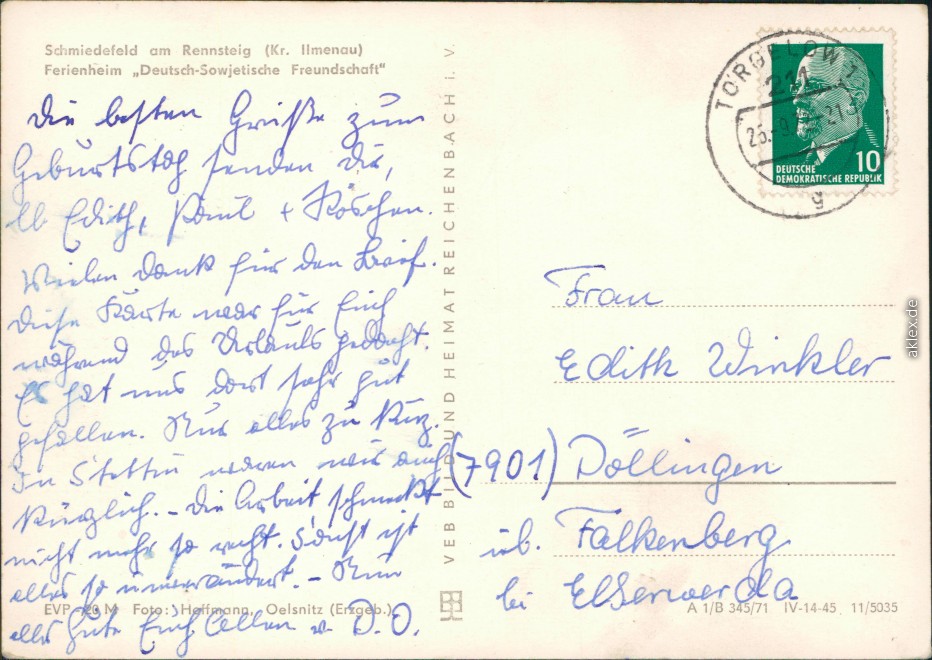 Schmiedefeld am Rennsteig (Kr. Ilmenau)
Ferienheim „Deutsch-Sowjetische Freundschaft"
Die besten Grüße zum
Geburtstag senden Dir,
lb Edith, Paul + Röschen.
Vielen Dank für den Brief.
Diese Karte war für Euch
während des Urlaubs gedacht.
Es hat uns dort sehr gut
gefallen. Nur alles zu kurz.
In Stettin waren wir auch
kürzlich. - Die Arbeit schmeckt
nicht mehr so recht. Sonst ist
alles so unverändert. - Nun
alles Gute Euch Allen v. D. O.
EVP 20 M Foto: Hoffmann, Oelsnitz (Erzgeb.)
VEB BILD UND HEIMAT REICHENBACH i. V.
TORGELOW 1
211
25.-9
21
g
10
DEUTSCHE
DEMOKRATISCHE REPUBLIK
Frau
Edith Winkler
(7901) Döllingen
üb. Falkenberg
bei Elsterwerda
A 1/B 345/71 IV-14-45 11/5035
aklex.de